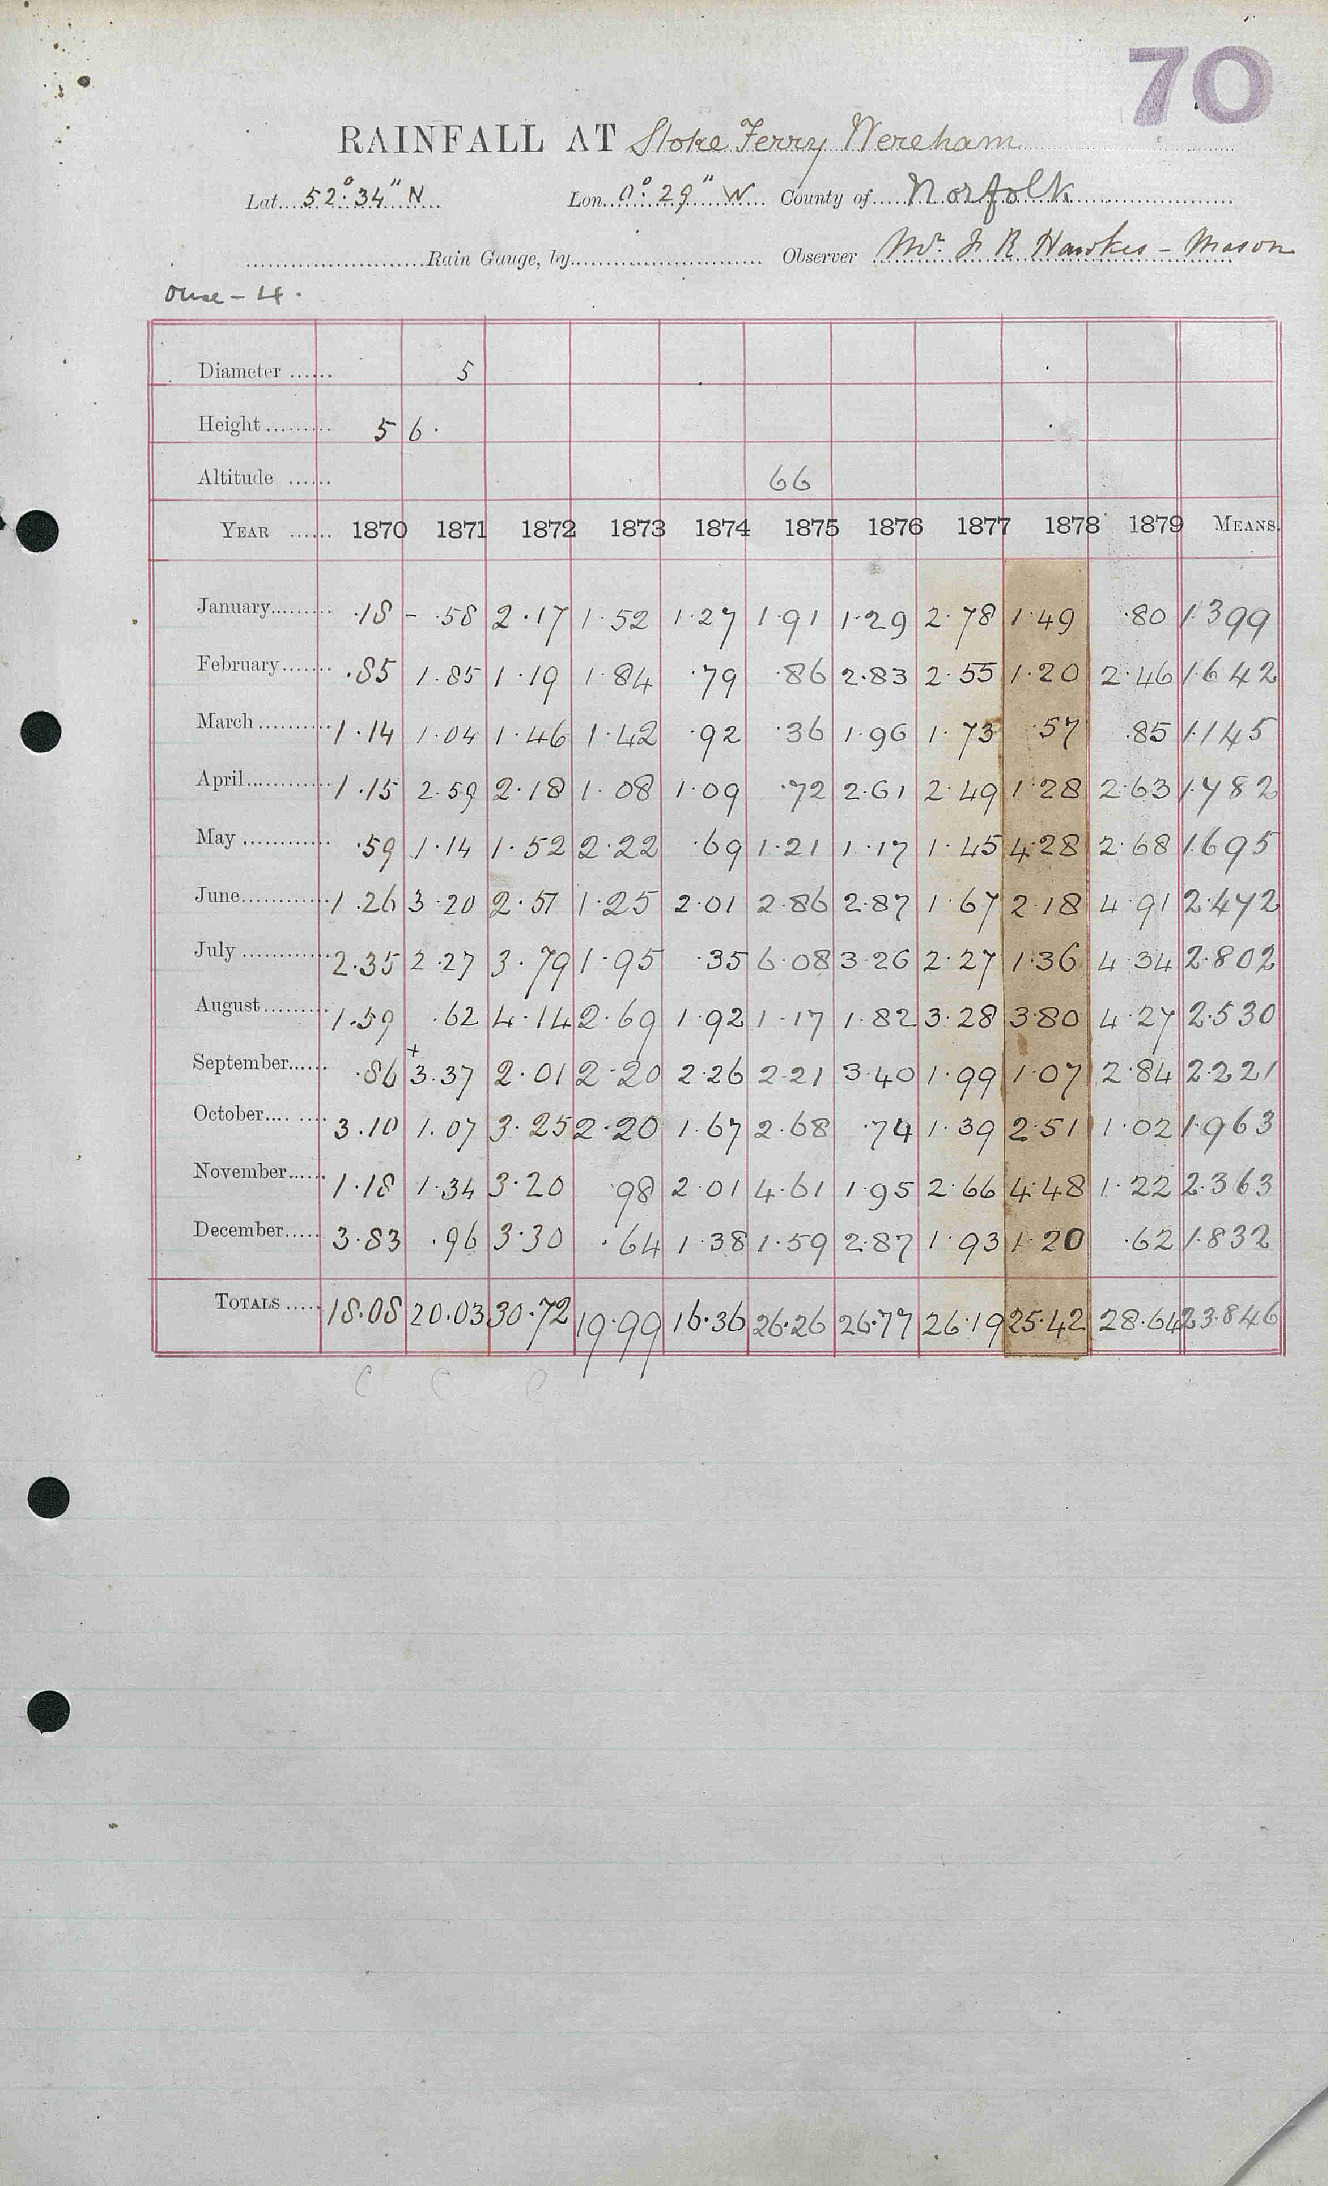 70
RAINFALL AT Stoke Ferry Wereham
Lat. 52° 34" N Lon. 0° 29" W County of Norfolk
Rain Gauge, by Observer Mr. J. R Hawkes - Mason
Ouse - 4.
Diameter 5
Height 5 6.
Altitude 66
YEAR 1870 1871 1872 1873 1874 1875 1876 1877 1878 1879 MEANS.
January .18 - .58 2.17 1.52 1.27 1.91 1.29 2.78 1.49 .80 1.399
February .85 1.85 1.19 1.84 .79 .86 2.83 2.55 1.20 2.46 1.642
March 1.14 1.04 1.46 1.42 .92 .36 1.96 1.73 .57 .85 1.145
April 1.15 2.59 2.18 1.08 1.09 .72 2.61 2.49 1.28 2.63 1.782
May .59 1.14 1.52 2.22 .69 1.21 1.17 1.45 4.28 2.68 1.695
June 1.26 3.20 2.51 1.25 2.01 2.86 2.87 1.67 2.18 4.91 2.472
July 2.35 2.27 3.79 1.95 .35 6.08 3.26 2.27 1.36 4.34 2.802
August 1.59 .62 4.14 2.69 1.92 1.17 1.82 3.28 3.80 4.27 2.530
September .86 + 3.37 2.01 2.20 2.26 2.21 3.40 1.99 1.07 2.84 2.221
October 3.10 1.07 3.25 2.20 1.67 2.68 .74 1.39 2.51 1.02 1.963
November 1.18 1.34 3.20 .98 2.01 4.61 1.95 2.66 4.48 1.22 2.363
December 3.83 .96 3.30 .64 1.38 1.59 2.87 1.93 1.20 .62 1.832
TOTALS 18.08 20.03 30.72 19.99 16.36 26.26 26.77 26.19 25.42 28.64 23.846
C C C